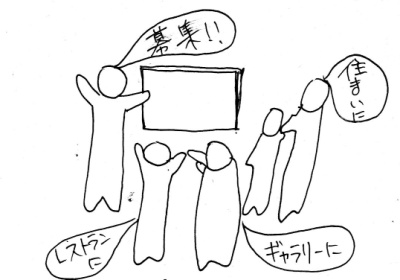 募集!!
住まいに
レストラン
に
ギャラリーに